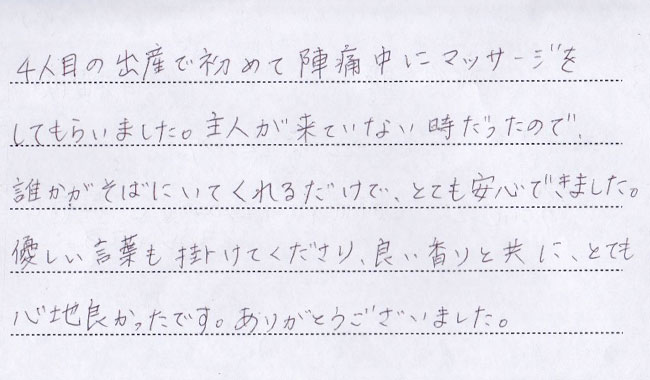 4人目の出産で初めて陣痛中にマッサージを
してもらいました。主人が来ていない時だったので、
誰かがそばにいてくれるだけで、とても安心できました。
優しい言葉も掛けてくださり、良い香りと共に、とても
心地良かったです。ありがとうございました。